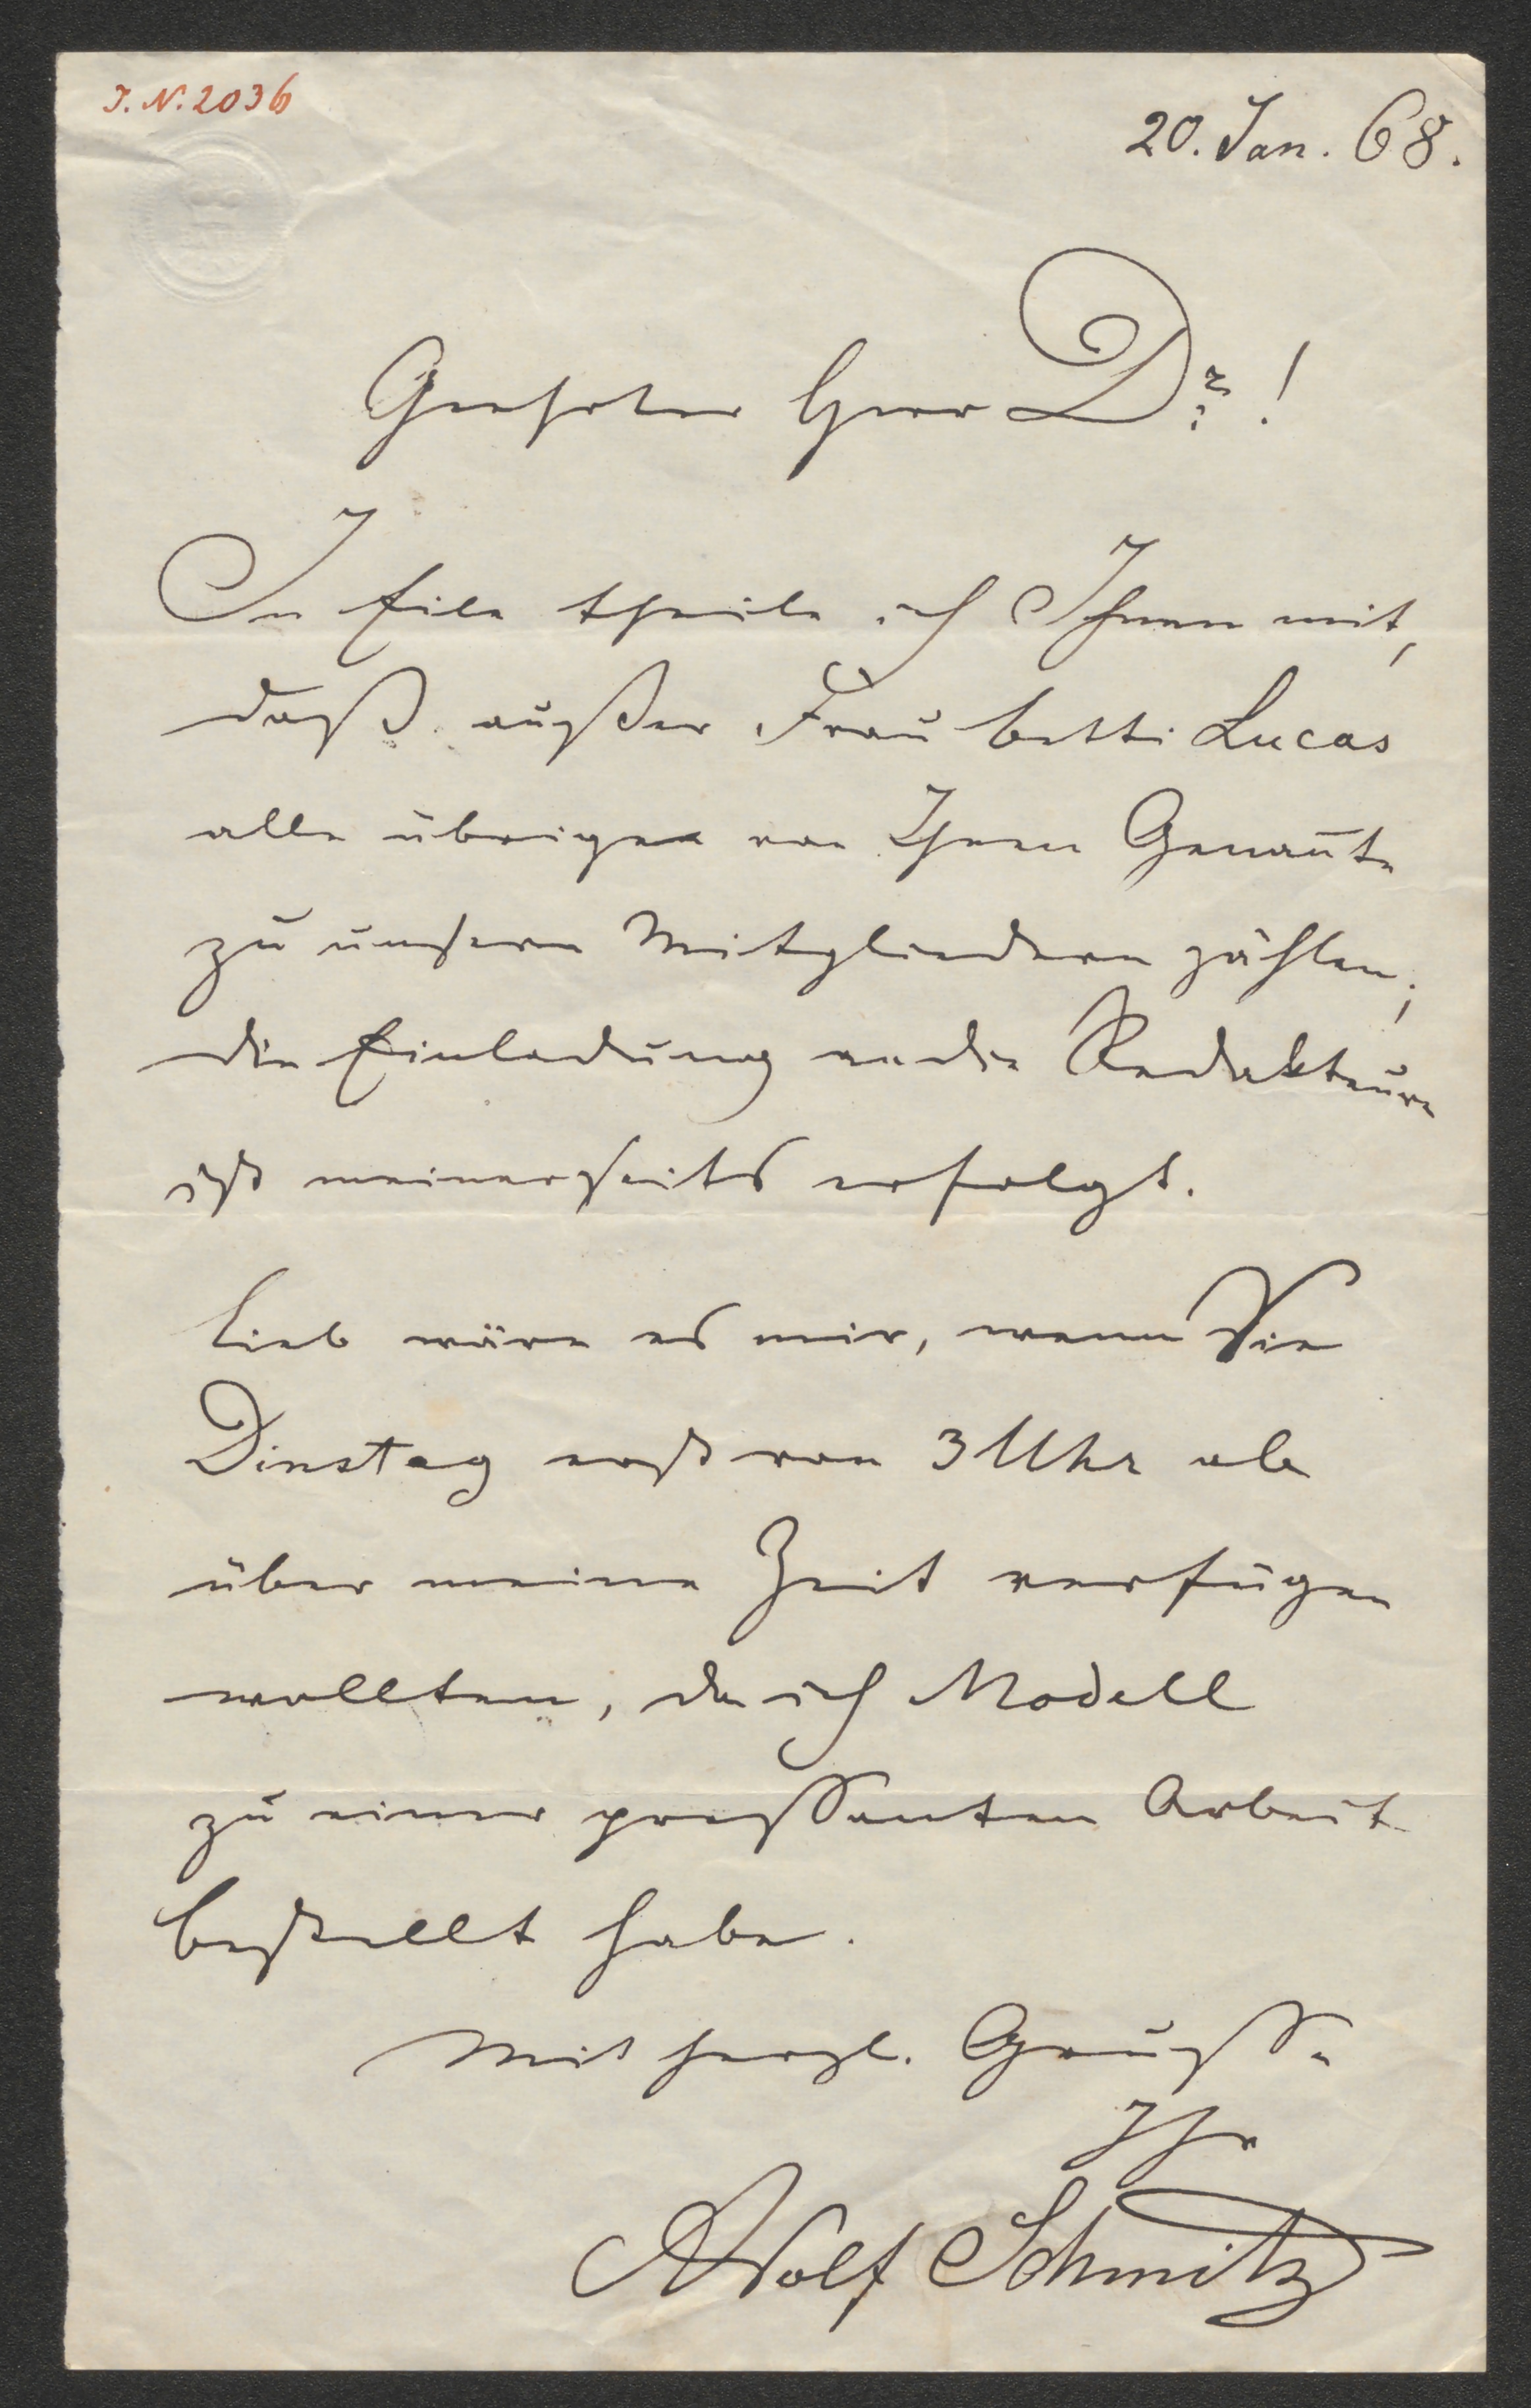 J. N. 2036
20. Jan. 68.
Geehrter Herr Dr!
In Eile theile ich Ihnen mit,
daß außer Frau Betti Lucas
alle übrigen von Ihnen Genañte
zu unsern Mitgliedern zählen;
die Einladung an die Redakteure
ist meinerseits erfolgt.
Lieb wäre es mir, wenn Sie
Dinstag erst von 3 Uhr ab
über meine Zeit verfügen
wollten, da ich Modell
zu einer pressanten Arbeit
bestellt habe.
Mit herzl. Gruße
Ihr
Adolf Schmitz